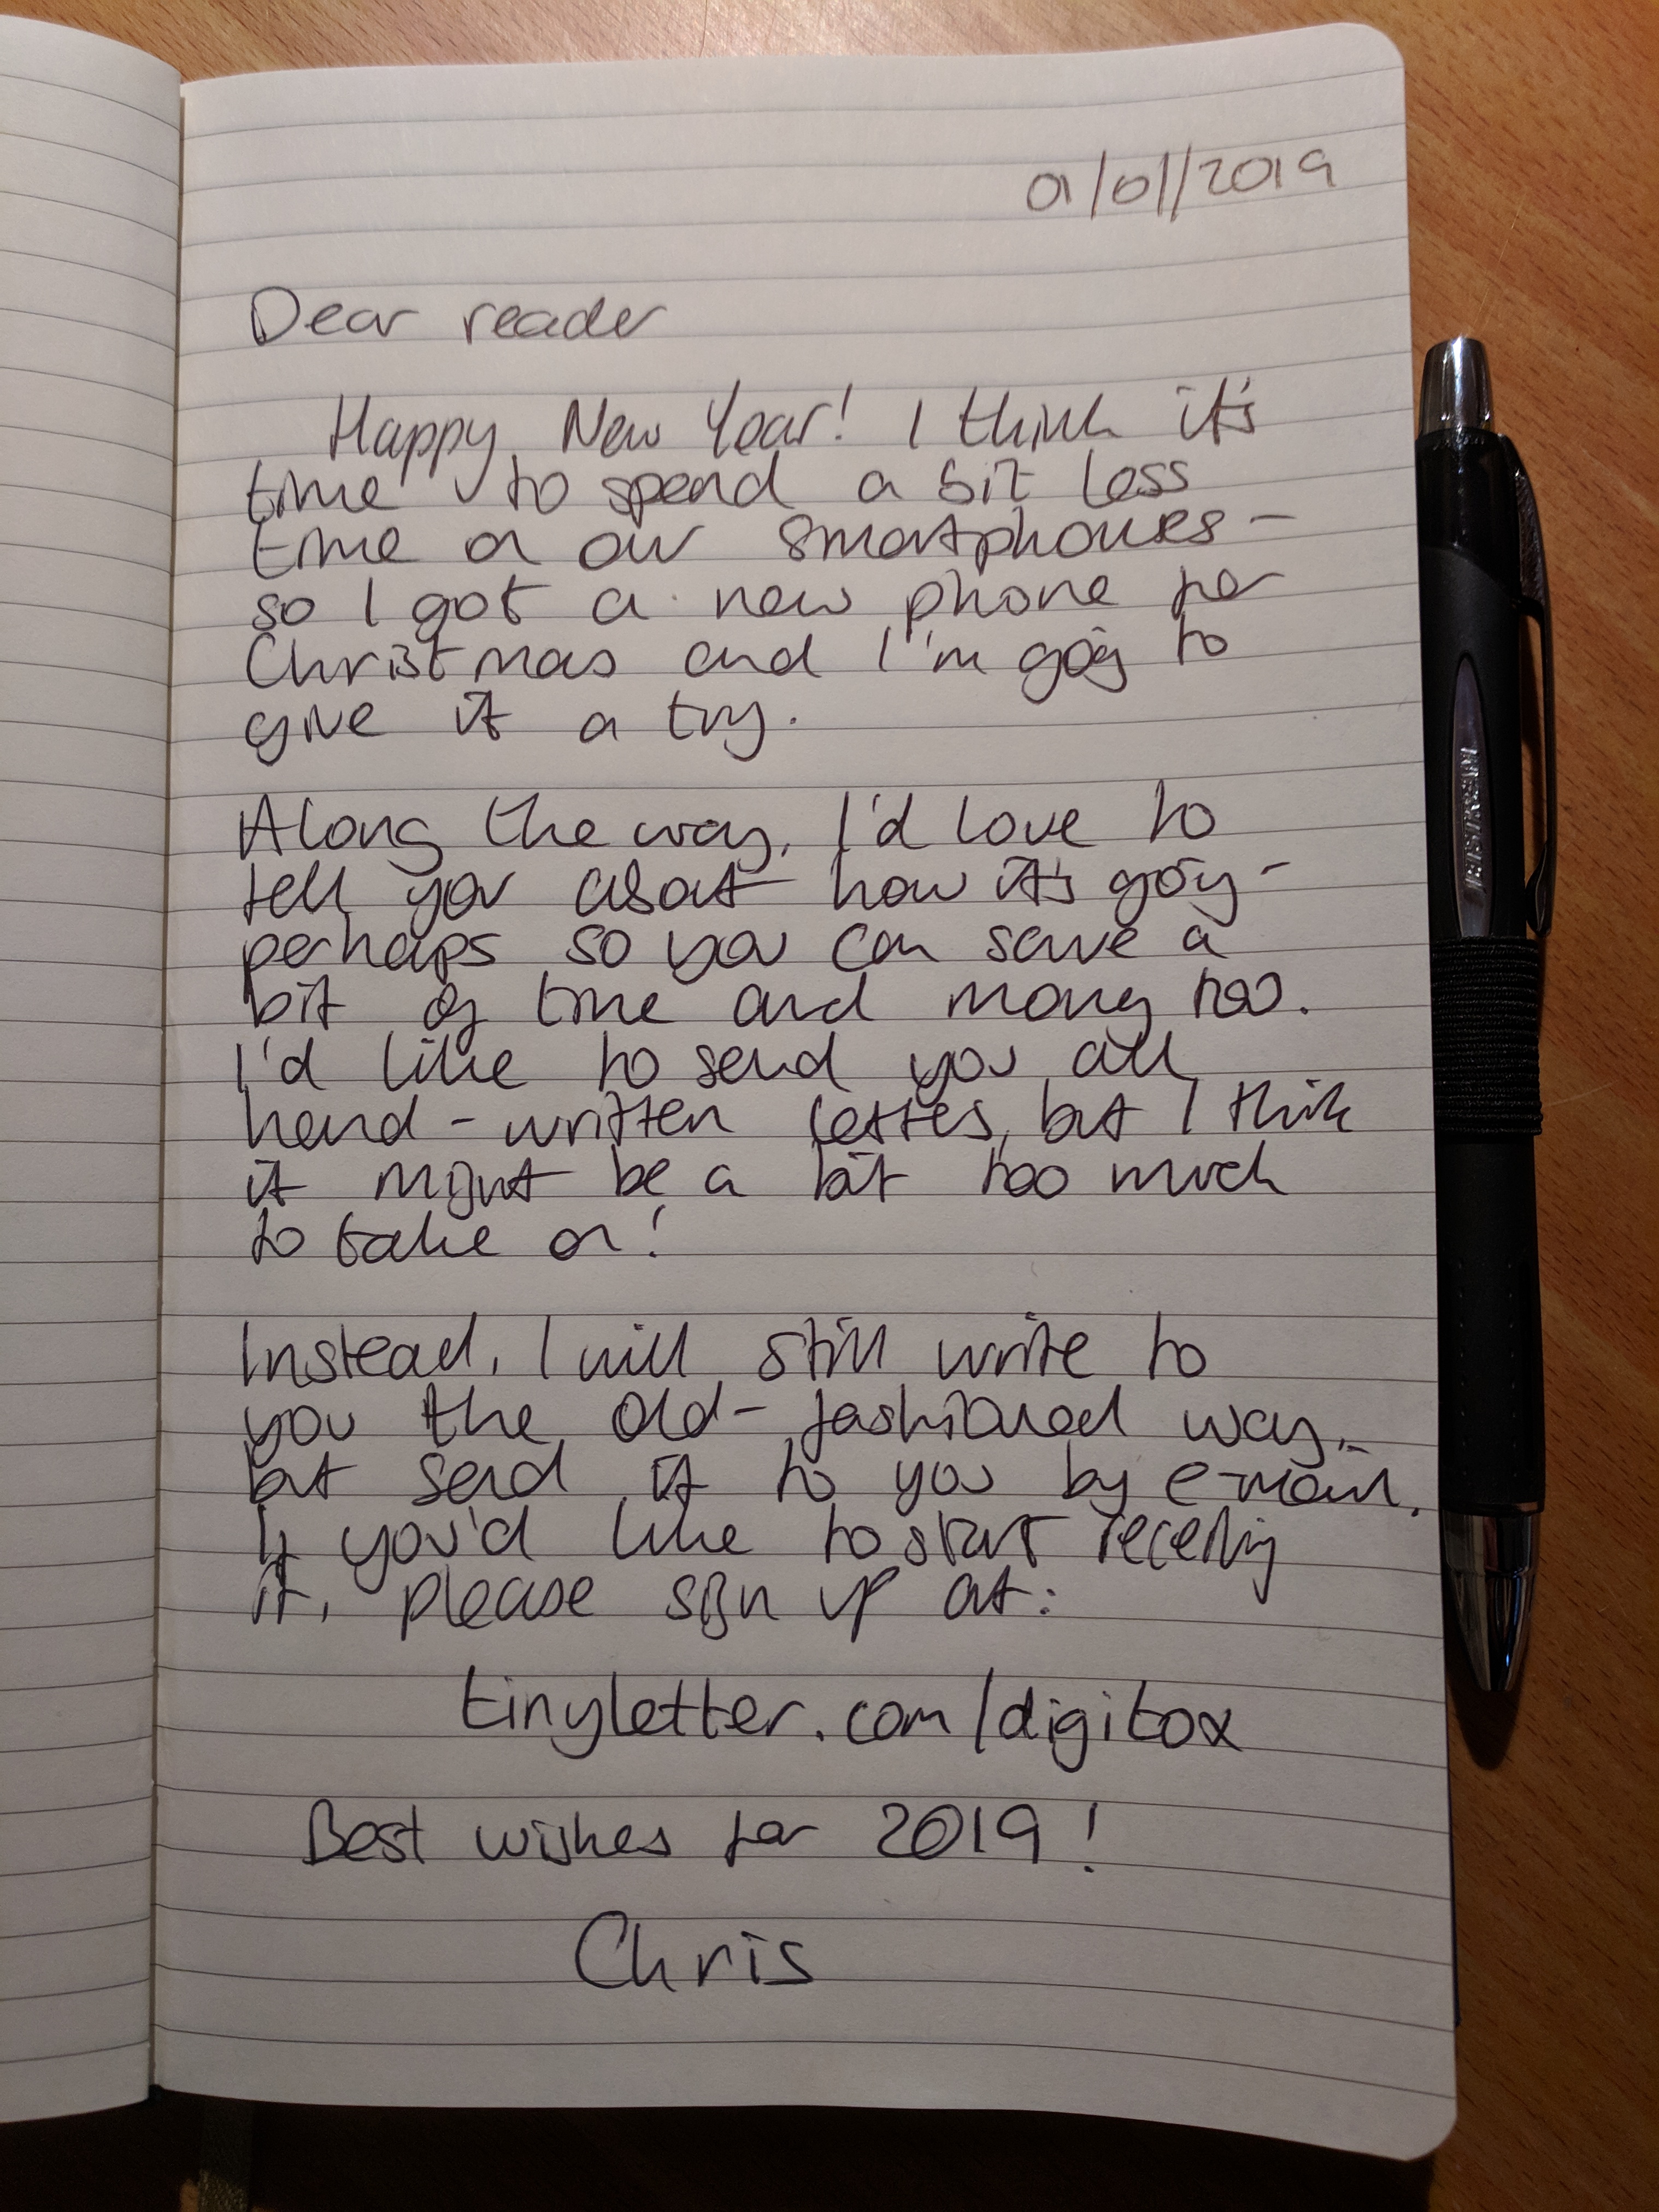 01/01/2019
Dear reader
Happy New Year! I think it's
time to spend a bit less
time on our smartphones –
so I got a new phone for
Christmas and I'm going to
give it a try.
Along the way, I'd love to
tell you about how it's going –
perhaps so you can save a
bit of time and money too.
I'd like to send you all
hand-written letters, but I think
it might be a bit too much
to take on!
Instead, I will still write to
you the old-fashioned way,
but send it to you by e-mail.
If you'd like to start receiving
it, please sign up at:
tinyletter.com/digitox
Best wishes for 2019!
Chris
JETSTREAM